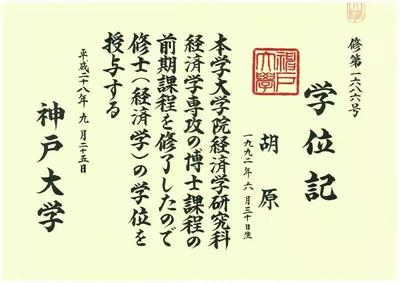 修第一六八六号
学位記
胡原
一九九二年六月三十日生
神戸
大學
本学大学院経済学研究科
経済学専攻の博士課程の
前期課程を修了したので
修士（経済学）の学位を
授与する
平成二十八年九月二十五日
神戸大学